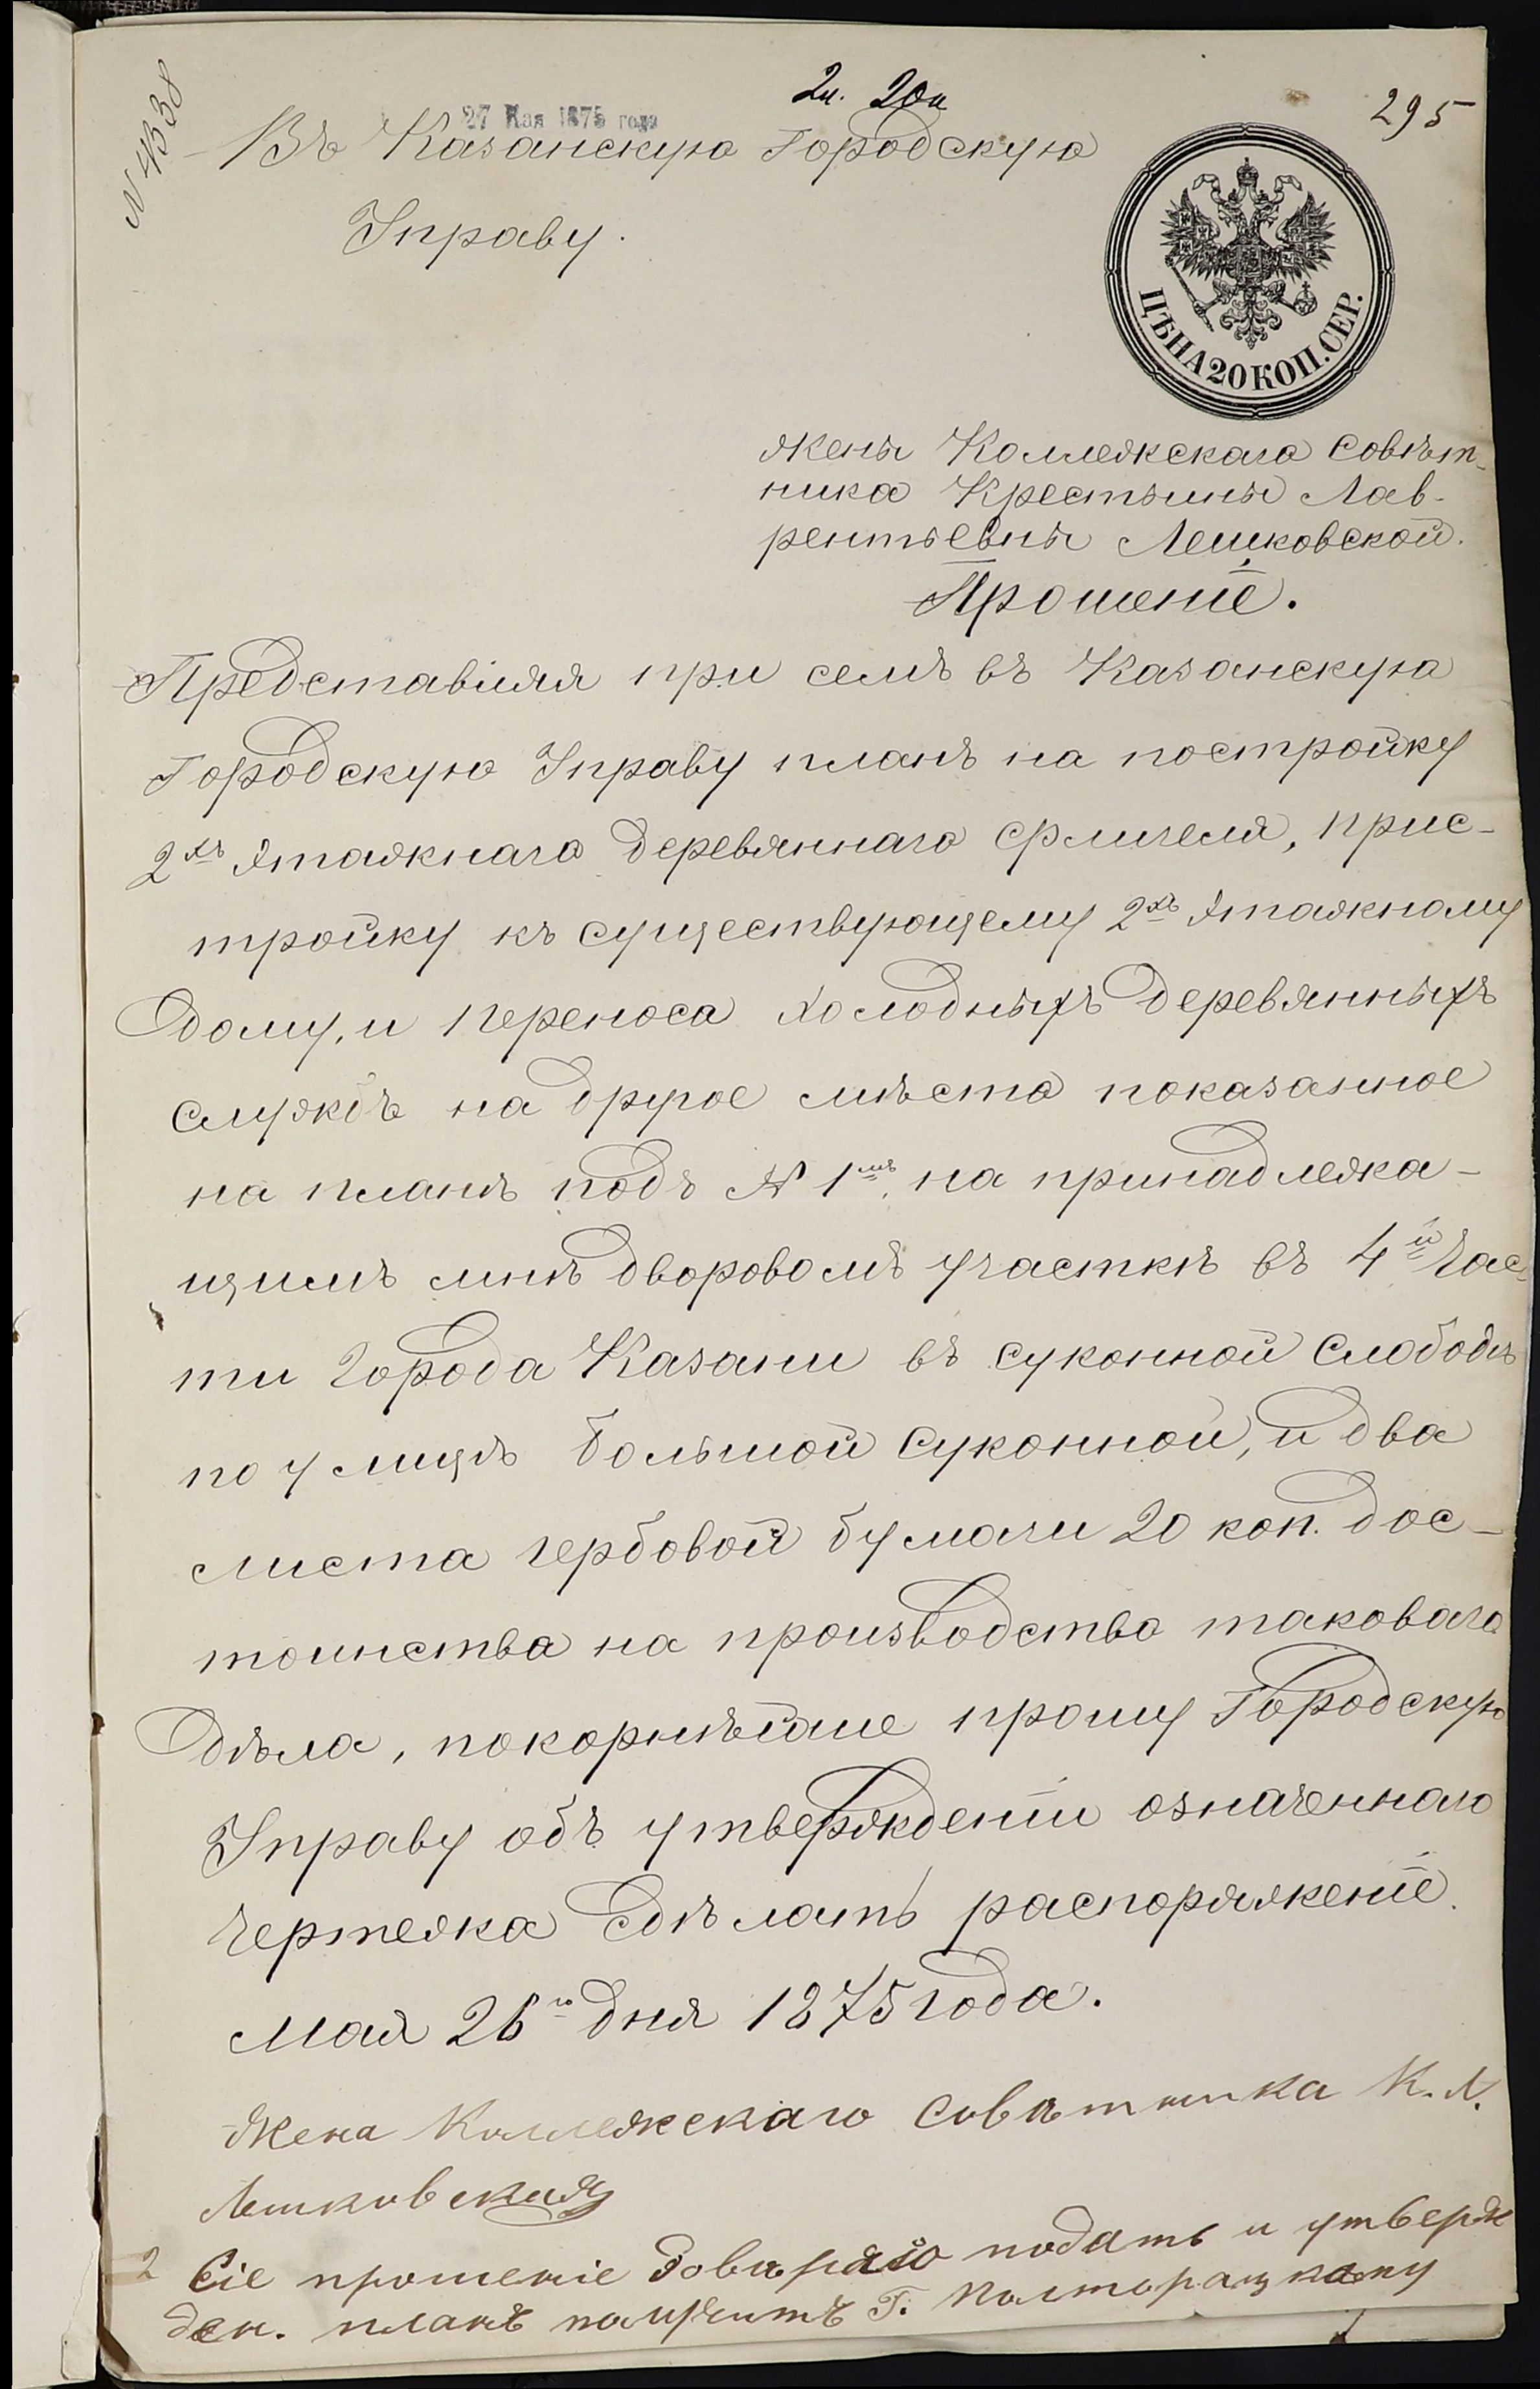 2 л. 20 к
295
27 Мая 1875 года
N 4338
Въ Казанскую Городскую
Управу.
ЦѢНА 20 КОП. СЕР.
жены Коллежскаго Совѣт-
ника Крестьины Лав-
рентьевны Лешковской.
Прошеніе.
Представляя при семъ въ Казанскую
Городскую Управу планъ на постройку
2хъ этажнаго деревяннаго флигеля, прис-
тройку къ существующему 2хъ этажному
дому, и переноса холодныхъ деревянныхъ
службъ на другое мѣсто показанное
на планѣ подъ № 1мъ, на принадлежа-
щимъ мнѣ дворовомъ участкѣ въ 4й час-
ти города Казани въ суконной Слободѣ
по улицѣ большой Суконной, и два
листа гербовой бумаги 20 коп. дос-
тоинства на производство таковаго
дѣла, покорнѣйше прошу Городскую
Управу объ утвержденіи означеннаго
чертежа сдѣлать распоряженіе.
Мая 26го дня 1875 года.
Жена Коллежскаго Совѣтника К. Л.
Лешковская
Сіе прошеніе довѣряю подать и утверж
ден. планъ получить Г. Полторацкому